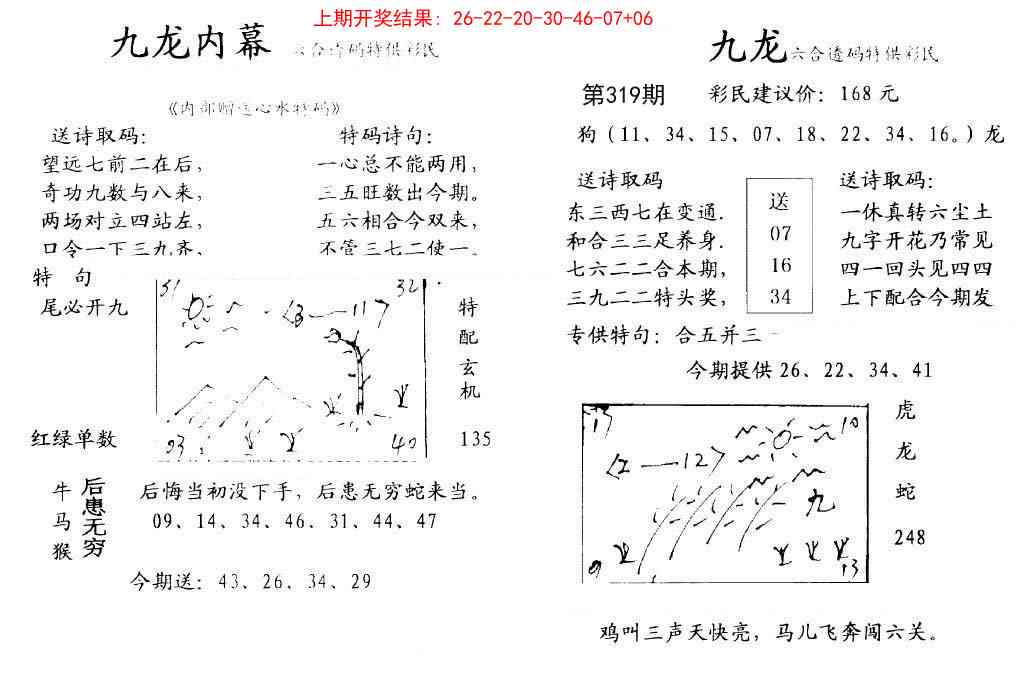 上期开奖结果：26-22-20-30-46-07+06
九龙内幕 六合透码特供彩民
《内部赠送心水特码》
送诗取码：
望远七前二在后，
奇功九数与八来，
两场对立四站左，
口令一下三九齐，
特码诗句：
一心总不能两用，
三五旺数出今期。
五六相合今双来，
不管三七二使一。
特 句
尾必开九
红绿单数
31
32
〈3——11〉
03
40
特
配
玄
机
135
牛
马
猴
后患无穷
后悔当初没下手，后患无穷蛇来当。
09、14、34、46、31、44、47
今期送：43、26、34、29
九龙六合透码特供彩民
第319期 彩民建议价：168元
狗（11、34、15、07、18、22、34、16。）龙
送诗取码
东三西七在变通．
和合三三足养身．
七六二二合本期，
三九二二特头奖，
送
07
16
34
送诗取码：
一休真转六尘土
九字开花乃常见
四一回头见四四
上下配合今期发
专供特句：合五并三
今期提供26、22、34、41
17
10
〈2——12〉
九
9
13
虎
龙
蛇
248
鸡叫三声天快亮，马儿飞奔闯六关。